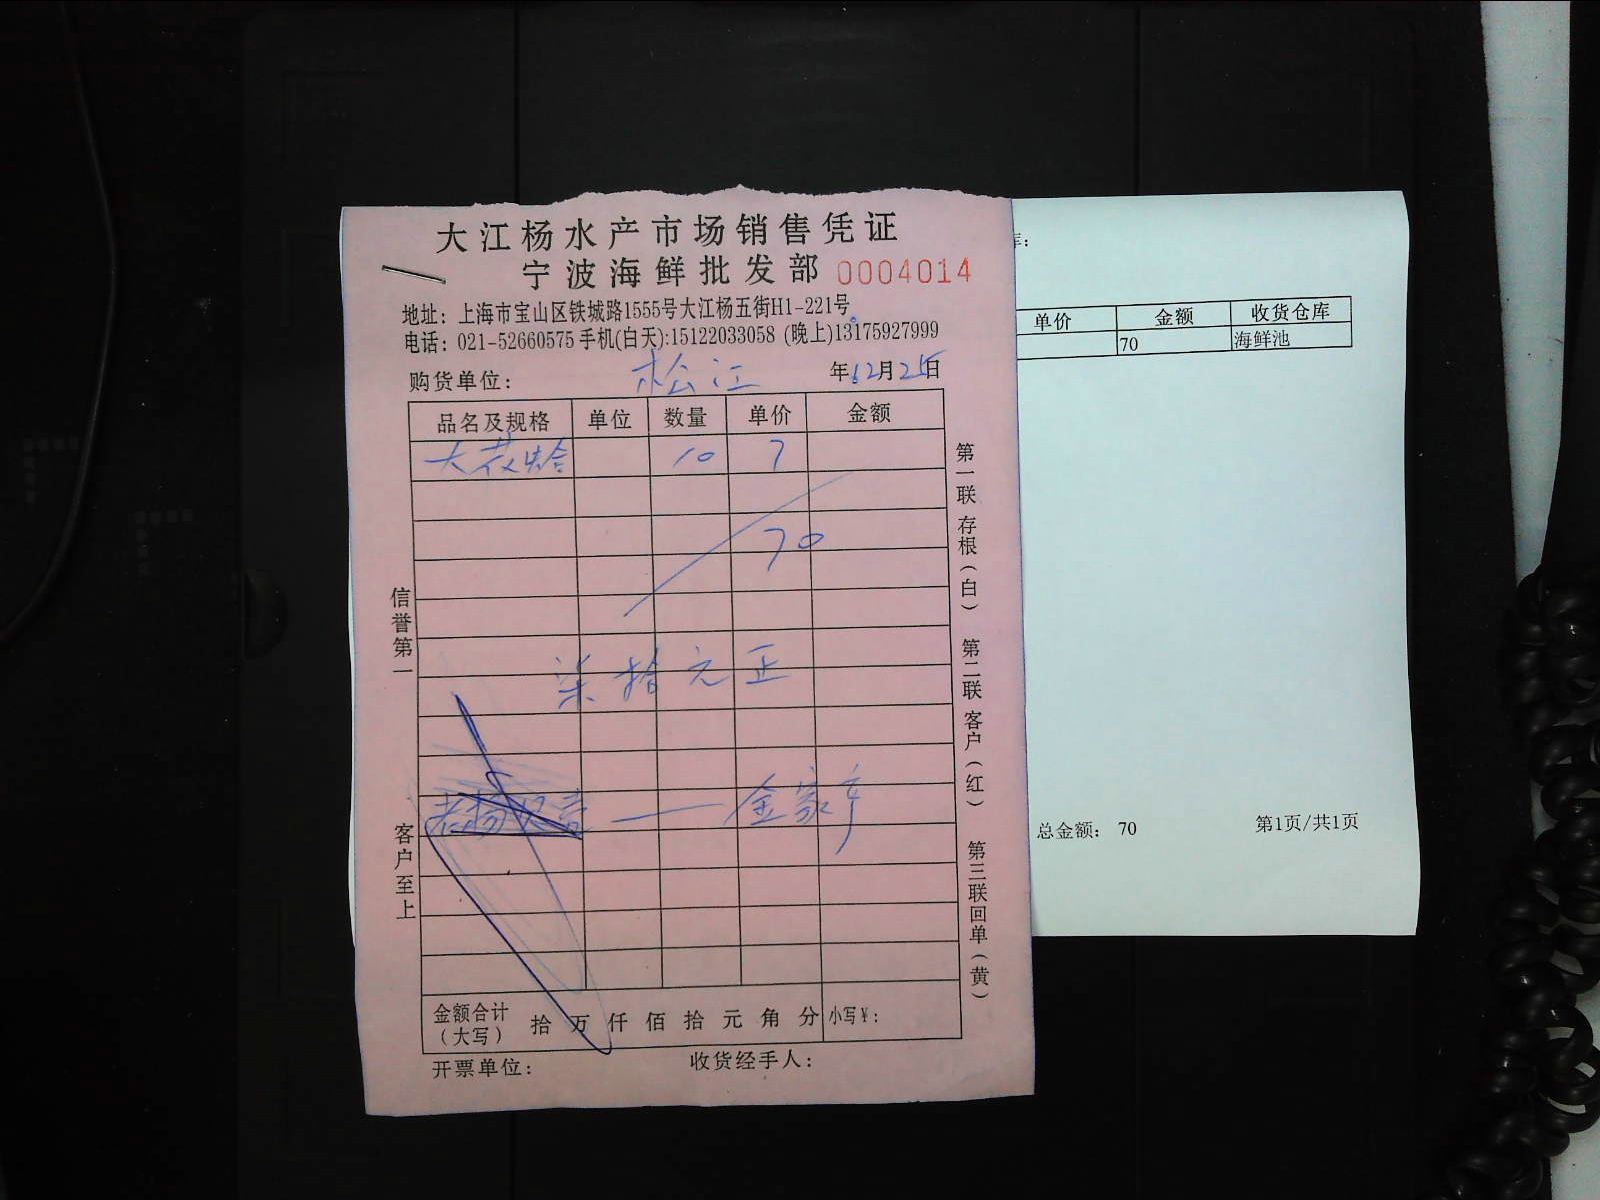 大江杨水产市场销售凭证
宁波海鲜批发部 0004014
地址：上海市宝山区铁城路1555号大江杨五街H1-221号
电话：021-52660575 手机(白天):15122033058 (晚上)13175927999
购货单位： 松江 年12月25日
品名及规格 单位 数量 单价 金额
大花蛤 10 7
70
柒拾元正
金家亨
金额合计（大写） 拾 万 仟 佰 拾 元 角 分 小写￥：
开票单位： 收货经手人：
信誉第一
客户至上
第一联 存根（白）
第二联 客户（红）
第三联 回单（黄）
库：
单价 金额 收货仓库
70 海鲜池
总金额： 70 第1页/共1页